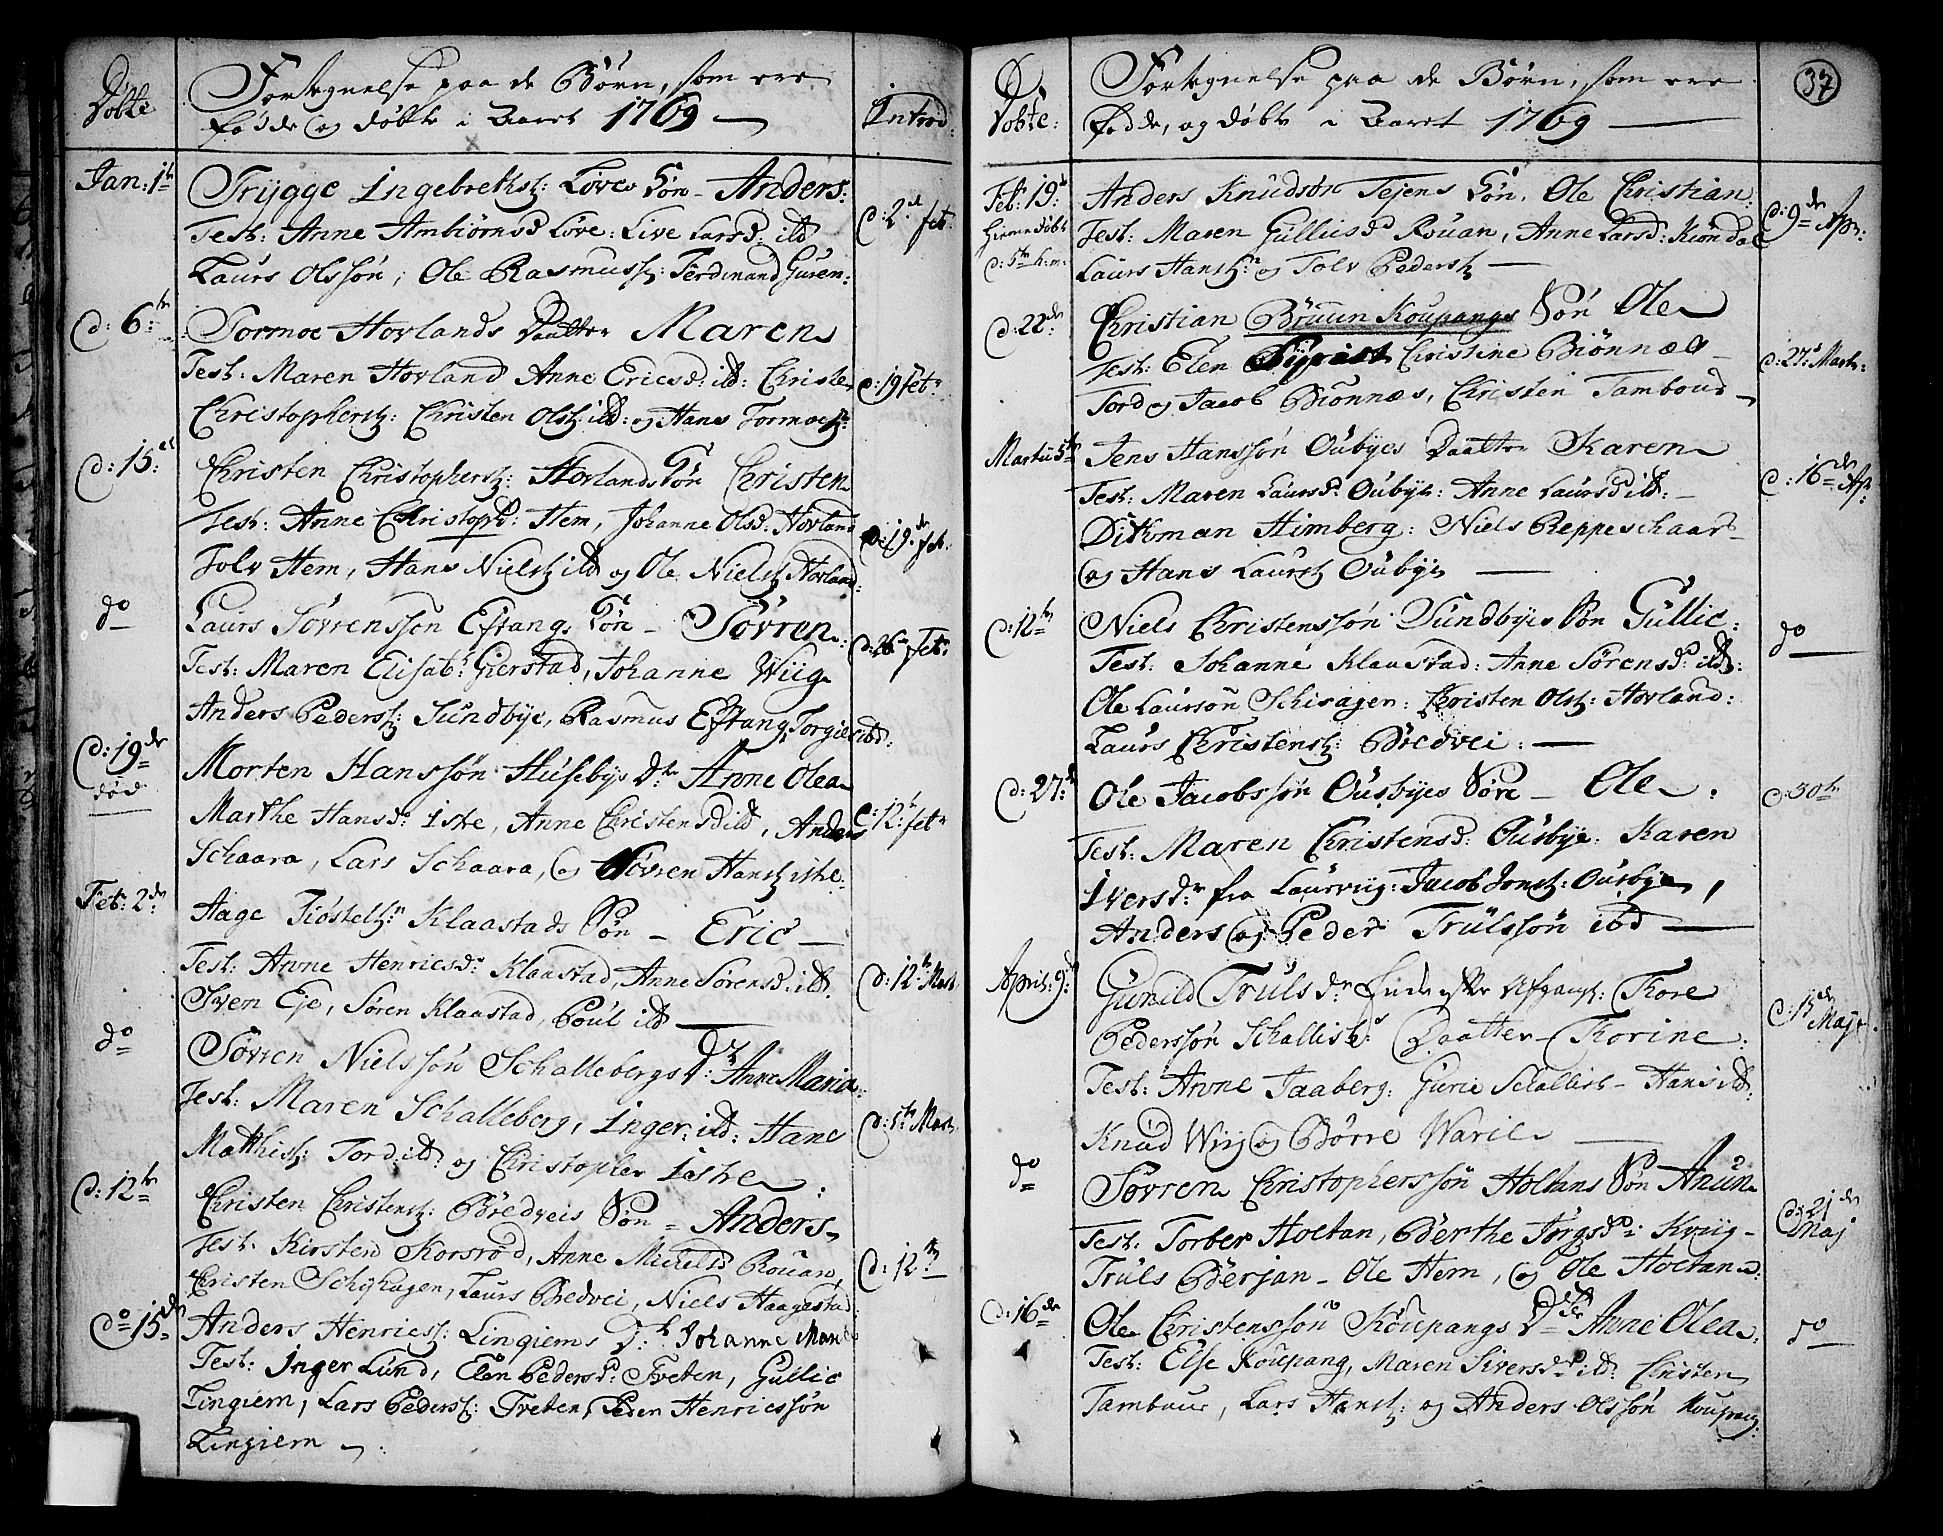 Døbte
Fortegnelse paa de Børn, som ere
fødde og døbte i Aaret 1769
Introd:
Jan: 1te
Trygge Ingebrethss: Løves Søn - Anders:
Test: Anne Ambiørnsd Løve: Live Larsd: ibd
Laurs Olssøn, Ole Rasmuss: Ferdinand Guren:
d: 2de feb.
d: 6te
Tormoe Hovlands Daatter Maren
Test: Maren Hovland Anne Ericsd: ibd: Christen
Christophers: Christen Ols: ibd: og Hans Tormoes:
d: 19 Feb:
d: 15de
Christen Christophers: Hovlands Søn Christen
Test: Anne Christophd: Hem, Johanne Olsd: Hovland
Tolv Hem, Hans Niels: ibd og Ole Niels Hovland:
d: 19de feb.
do
Laurs Sørrenssøn Eftangs Søn - Sørren:
Test: Maren Elisab: Gierstad, Johanne Wiig
Anders Peders: Sundbye, Rasmus Eftang, Torgie ibd:
d: 26 Feb:
d: 19de
død
Morten Hanssøn Husebys Dr Anne Olea
Marthe Hansd: Istre, Anne Christensd ibd, Anders
Schaara, Lars Schaara, og Sørren Hans Istre
d: 12 feb
Feb: 2de
Aage Kiøstels: Klaastads Søn - Eric -
Test: Anne Henricsd: Klaastad, Anne Sørensd: ibd.
Sven Eje, Søren Klaastad, Poul ibd
d: 12te Mart.
do
Sørren Nielssøn Schallebergs Dr: Anne Maria:
Test: Maren Schalleberg, Inger: ibd: Hans
Matthis: Tord: ibd: og Christopher Istre:
d: 5te Mart.
d: 12te
Christen Christens: Bredveis Søn = Anders
Test: Kirsten Korsrød, Anne Michelsd Rouan,
Christen Schihagen, Laurs Bredvei, Niels Haagestad
d: 12te
do 15de
Anders Henrics: Lingiems Dr Johanne Marie
Test: Inger Lund, Elen Pedersd: Tveten, Gullic
Lingiem, Lars Peders: Tveten, Peder Henricssøn
Lingiem
37
Døbte:
Fortegnelse paa de Børn, som ere
fødde, og døbte i Aaret 1769
Feb: 19de
Hiemedøbt
d: 5te h: m:
Anders Knudsøn Tejens Søn, Ole Christian
Test: Maren Gulliesd Rouan, Anne Larsd: Kiøndal
Laurs Hans: og Tolv Peders
d: 9de Apr:
d: 22de
Christian Bruun Koupangs Søn Ole
Test: Elen Christine Biønnæs
Tord og Jacob Biønnæs, Christen Tambour
d: 27de Mart:
Martii 5te
Jens Hanssøn Oubyes Daatter Karen
Test: Maren Laursd: Oubye: Anne Laursd ibd:
Ditkman Himberg: Niels Reppeschaar
og Hans Laurs Oubye
d: 16de Ap:
d: 12te
Niels Christenssøn Sundbyes Søn Gullic:
Test: Johanne Klaastad: Anne Sørensd: ibd:
Ole Laursøn Schisagen: Christen Ols: Hovland:
Laurs Christens: Bredvei:
do
d: 27de
Ole Jacobssøn Ousbyes Søn - Ole:
Test: Maren Christensd: Ousbye: Karen
Iversdr fra Laurviig: Jacob Jons: Ousbye,
Anders og Peder Trulssøn ibd
d: 30te
April: 9de
Gunild Truls dr Afgangs: Thore
Pederssøn Schallists Daatter Thorine:
Test: Anne Taaberg: Gurie Schallist - Hans ibd:
Knud Wiig og Børre Waril
d: 15de Maj
do
Sørren Christophersøn Holtans Søn Anun
Test: Torber Holtan, Berthe Jørgsd: Kviig
Truls Berjan - Ole Hem, og Ole Holtan:
d: 21de Maj
d: 16de
Ole Christenssøn Koupangs Dtter Anne Olea:
Test: Else Koupang, Maren Siversdr ibd: Christen
Tambour, Lars Hans: og Anders Olssøn Koupang:
do